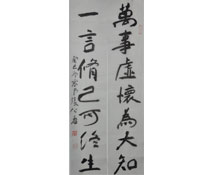 萬事虛懷為大知
一言脩己可終生